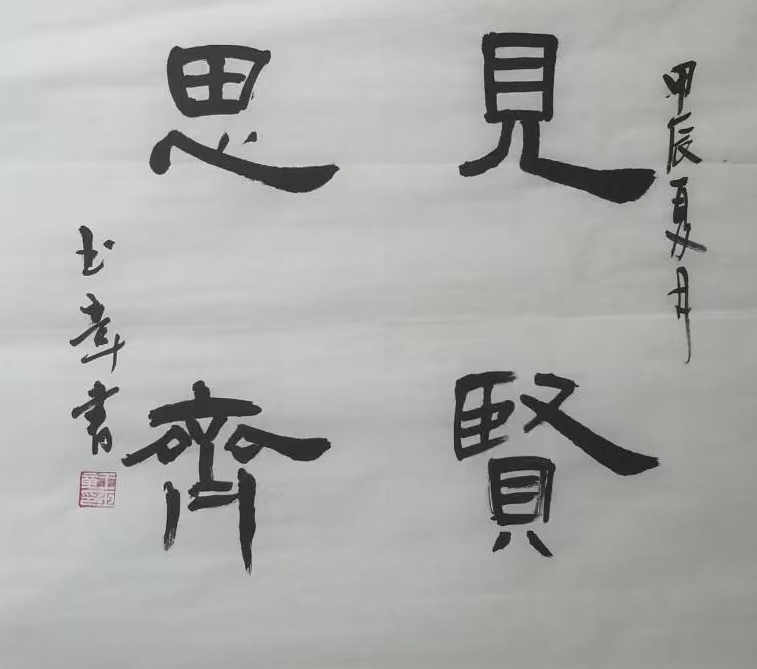 甲辰夏月
見賢
思齊
玉章書